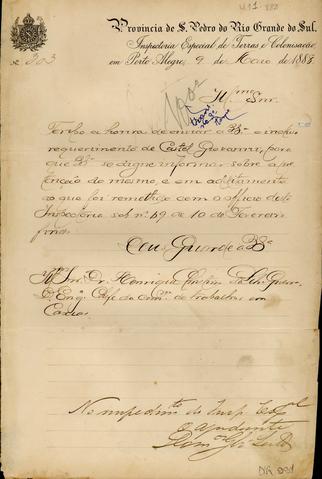 Provincia de S. Pedro do Rio Grande do Sul.
Inspectoria Especial de Terras e Colonisação
em Porto Alegre, 9 de Maio de 1883
Nº 203
Illmo Snr.
Tenho a honra de enviar a VSª o incluso
requerimento de Castel Giovanni, para
que VSª se digne informar sobre a pre
tenção do mesmo, e em additamento
ao que foi remettido com o officio desta
Inspectoria sob nº 19 de 10 de Fevereiro
findo.
Deus Guarde a VSª
Illmo Snr. Dr. Henrique
D. Engº Chefe da Comm. de trabalhos em
Caxias.
No impedimto do Insp. Esp.al
o ajudante